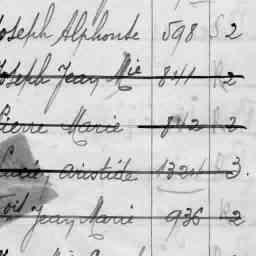 Joseph Alphonse 598 2
Joseph Jean Mie 841 2
Pierre Marie 842 2
Lucie, aristide 1324 3.
Jean Marie 936 2